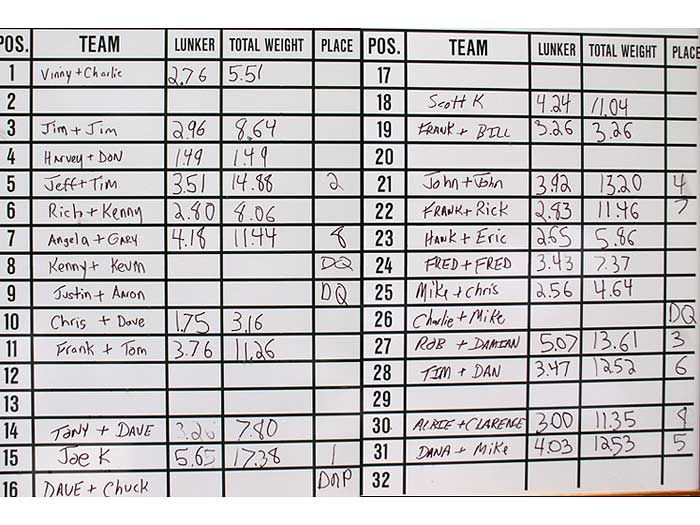 POS. TEAM LUNKER TOTAL WEIGHT PLACE
1 Vinny + Charlie 2.76 5.51
2
3 Jim + Jim 2.96 8.64
4 Harvey + DON 1.49 1.49
5 Jeff + Tim 3.51 14.88 2
6 Rich + Kenny 2.80 8.06
7 Angela + GARY 4.18 11.44 8
8 Kenny + Kevin DQ
9 Justin + Aaron DQ
10 Chris + Dave 1.75 3.16
11 Frank + Tom 3.76 11.26
12
13
14 TONY + DAVE 3.26 7.80
15 Joe K 5.65 17.38 1
16 DAVE + Chuck
POS. TEAM LUNKER TOTAL WEIGHT PLACE
17
18 Scott K 4.24 11.04
19 FRANK + BILL 3.26 3.26
20
21 John + John 3.92 13.20 4
22 FRANK + Rick 2.83 11.46 7
23 Hank + Eric 2.65 5.86
24 FRED + FRED 3.43 7.37
25 Mike + Chris 2.56 4.64
26 Charlie + Mike DQ
27 ROB + DAMIAN 5.07 13.61 3
28 TIM + DAN 3.47 12.52 6
29
30 ALBIE + CLARENCE 3.00 11.35
31 DANA + Mike 4.03 12.53 5
32